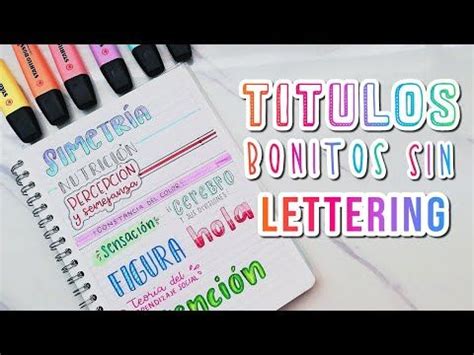 SIMETRÍA
NUTRICIÓN
PERCEPCIÓN
y semejanza
CONSTANCIA DEL COLOR
"cerebro
sus divisiones
sensación
hola
FIGURA
Teoría del
APRENDIZAJE SOCIAL
ención
TITULOS
BONITOS SIN
LETTERING